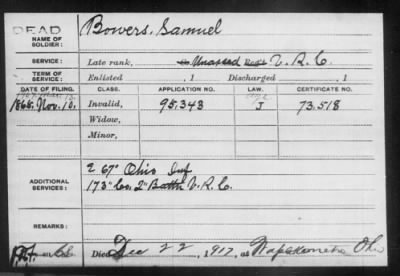 DEAD
NAME OF SOLDIER: Bowers, Samuel
SERVICE: Late rank, Unassd Reg't V. R. C.
TERM OF SERVICE: Enlisted , 1 Discharged , 1
DATE OF FILING. CLASS. APPLICATION NO. LAW. CERTIFICATE NO.
1865. Nov. 10. Invalid, 95.343 J 73.518
Widow,
Minor,
ADDITIONAL SERVICES: E 67" Ohio Inf
173" Co. 2" Battn V. R. C.
REMARKS:
Died Dec 22, 1917, at Wapakoneta Ohio